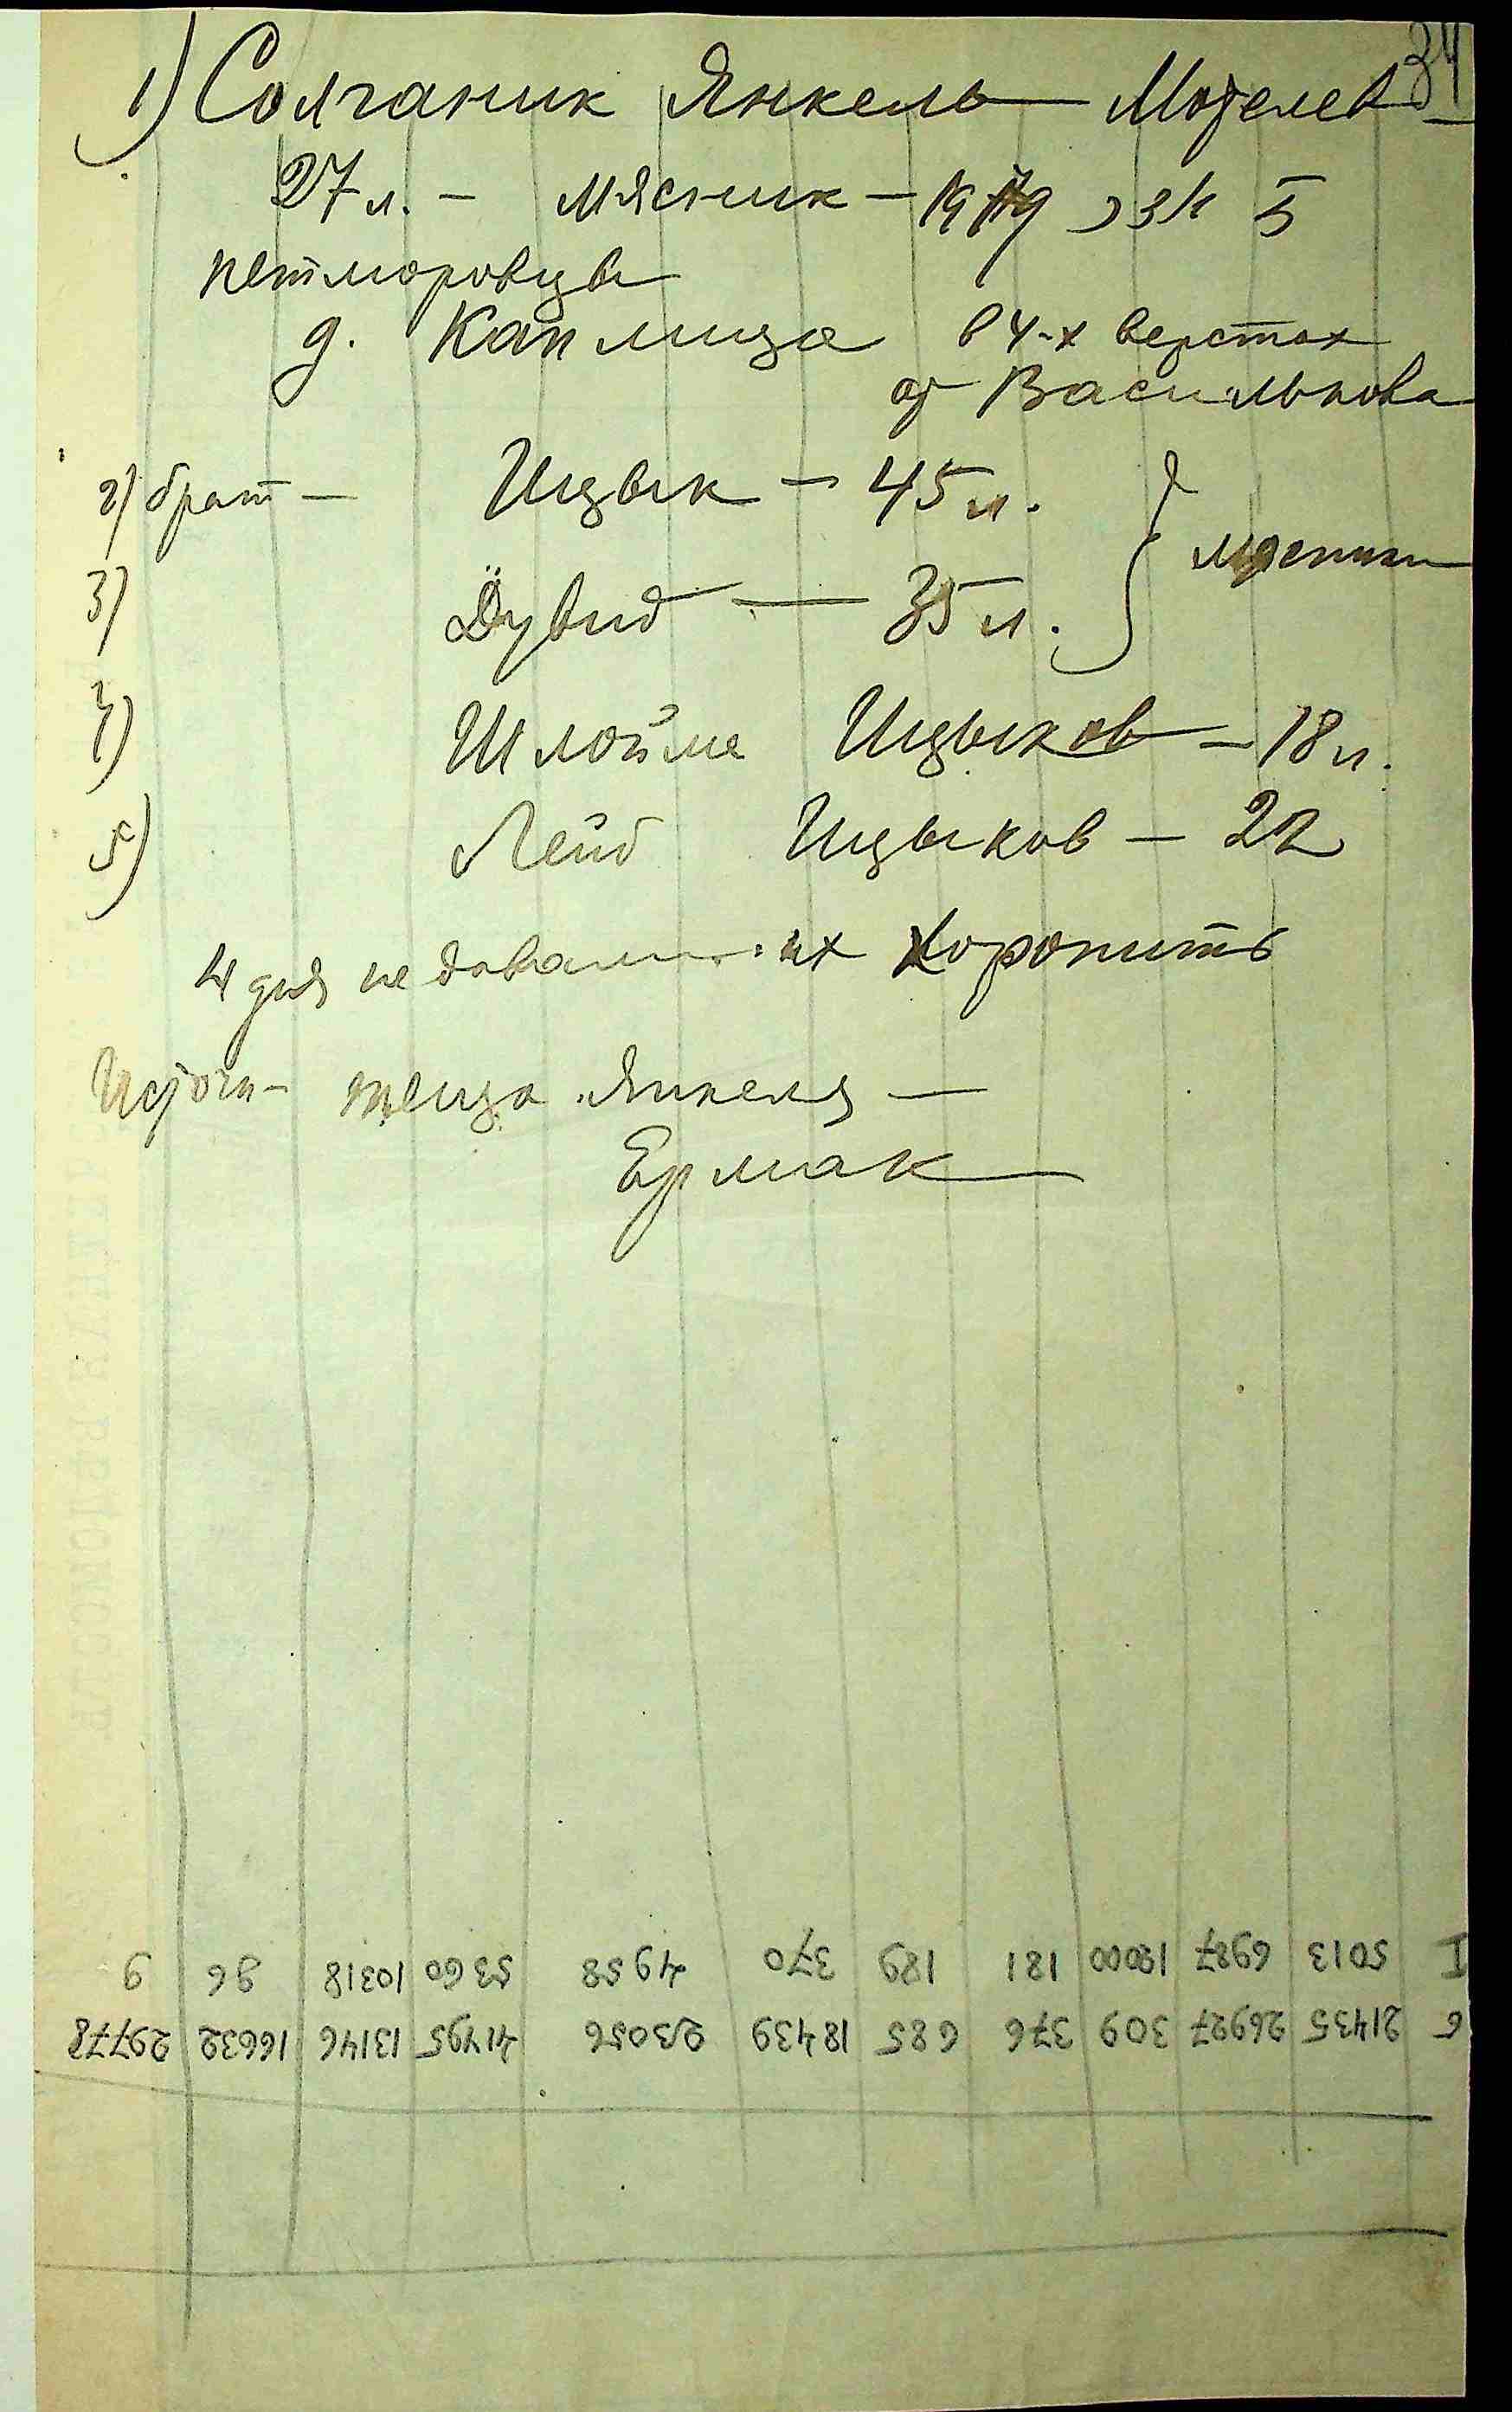 34
1) Солганик Янкель Мотелев
27 л. – мясник – 1919
петлюровцы
д. Каплица в 4-х верстах
от Василькова
2) брат – Ицык – 45 л.
мясники
3) Дувид – 35 л.
4) Шлойме Ицыков – 18 л.
5) Лейб Ицыков – 22
4 дня не давали их хоронить
Источн – теща Янкеля –
Ермак
6 21435 26927 309 376 685 18439 23056 41495 13146 16632 29778
I 5013 6987 12000 181 189 370 4958 5360 10318 96 9